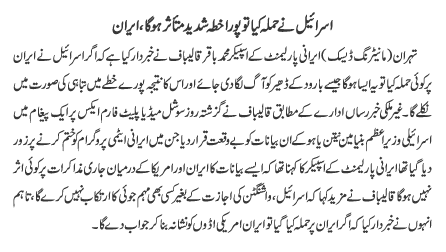 اسرائیل نے حملہ کیا تو پورا خطہ شدید متاثر ہوگا، ایران
تہران (مانیٹرنگ ڈیسک) ایرانی پارلیمنٹ کے اسپیکر محمد باقر قالیباف نے خبردار کیا ہے کہ اگر اسرائیل نے ایران
پر کوئی حملہ کیا تو یہ ایسا ہوگا جیسے بارود کے ڈھیر کو آگ لگا دی جائے اور اس کا نتیجہ پورے خطے میں تباہی کی صورت میں
نکلے گا۔ غیر ملکی خبر رساں ادارے کے مطابق قالیباف نے گزشتہ روز سوشل میڈیا پلیٹ فارم ایکس پر ایک پیغام میں
اسرائیلی وزیر اعظم بنیامین نیتن یاہو کے ان بیانات کو بے وقعت قرار دیا جن میں ایرانی ایٹمی پروگرام کو ختم کرنے پر زور
دیا گیا تھا ایرانی پارلیمنٹ کے اسپیکر کا کہنا تھا کہ ایسے بیانات کا ایران اور امریکا کے درمیان جاری مذاکرات پر کوئی اثر
نہیں ہوگا قالیباف نے مزید کہا کہ اسرائیل، واشنگٹن کی اجازت کے بغیر کسی بھی مہم جوئی کا ارتکاب نہیں کرے گا، تاہم
انہوں نے خبردار کیا کہ اگر ایران پر حملہ کیا گیا تو ایران امریکی اڈوں کو نشانہ بنا کر جواب دے گا۔